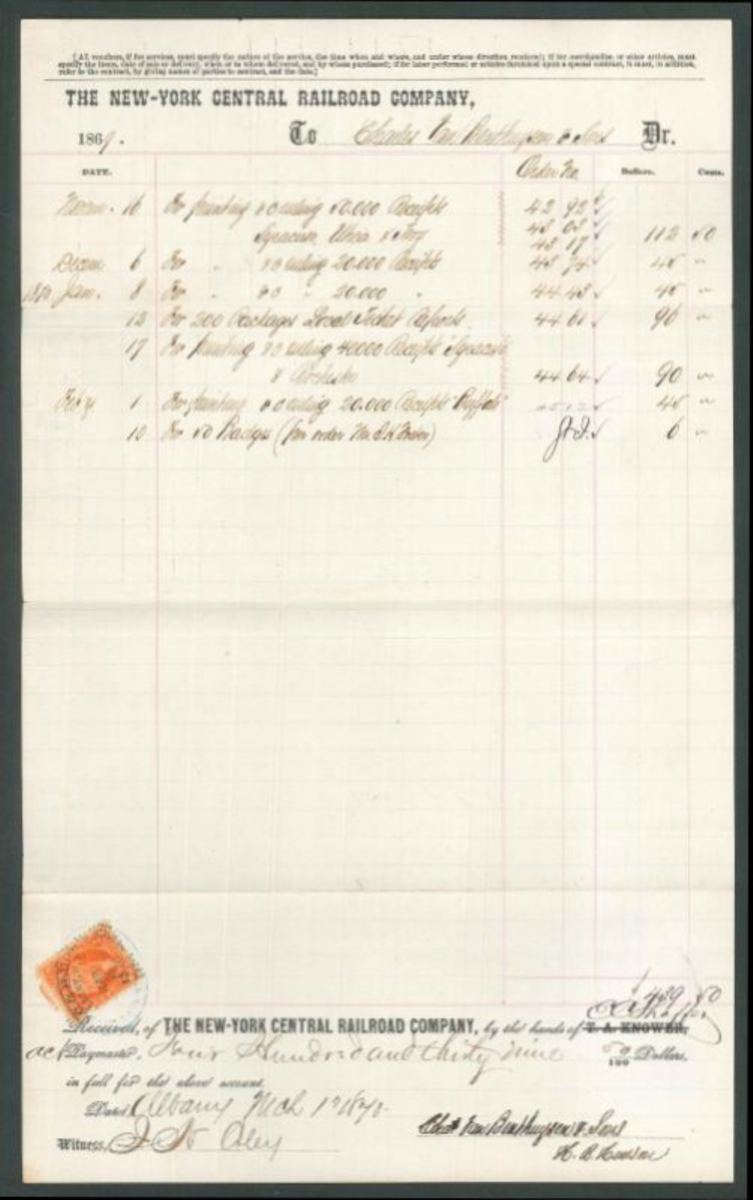 [All vouchers, if for services, must specify the nature of the service, the time when and where, and under whose direction rendered; if for merchandise or other articles, must
specify the items, date of sale or delivery, when or to whom delivered, and by whom purchased; if for labor performed or articles furnished upon a special contract, it must, in addition,
refer to the contract, by giving names of parties to contract, and the date.]
THE NEW-YORK CENTRAL RAILROAD COMPANY,
1869. To Charles Van Benthuysen & Sons Dr.
DATE. Order No. Dollars. Cents.
16 For printing 50.000 Receipts 42 92
Syracuse, Utica & Troy 43 03
43 17 112 50
Decem 6 For " 20.000 Receipts 43 74 45 "
1870 Jan. 8 For " " 20.000 " 44 43 45 "
13 For 200 Packages Local Ticket Reports 44 61 96 "
17 For printing 40000 Receipts "Syracuse
& Rochester 44 64 90 "
Feby 1 For printing 20.000 Receipts "Buffalo" 45 "
10 For 50 Badges (per order) 6 "
$439 50
Received, of THE NEW-YORK CENTRAL RAILROAD COMPANY, by the hands of T. A. KNOWER,
act Paymaster, Four Hundred and thirty nine 50/100 Dollars,
in full for the above account.
Dated Albany Mch 1870
Chas Van Benthuysen & Sons
Witness, J
H. B.